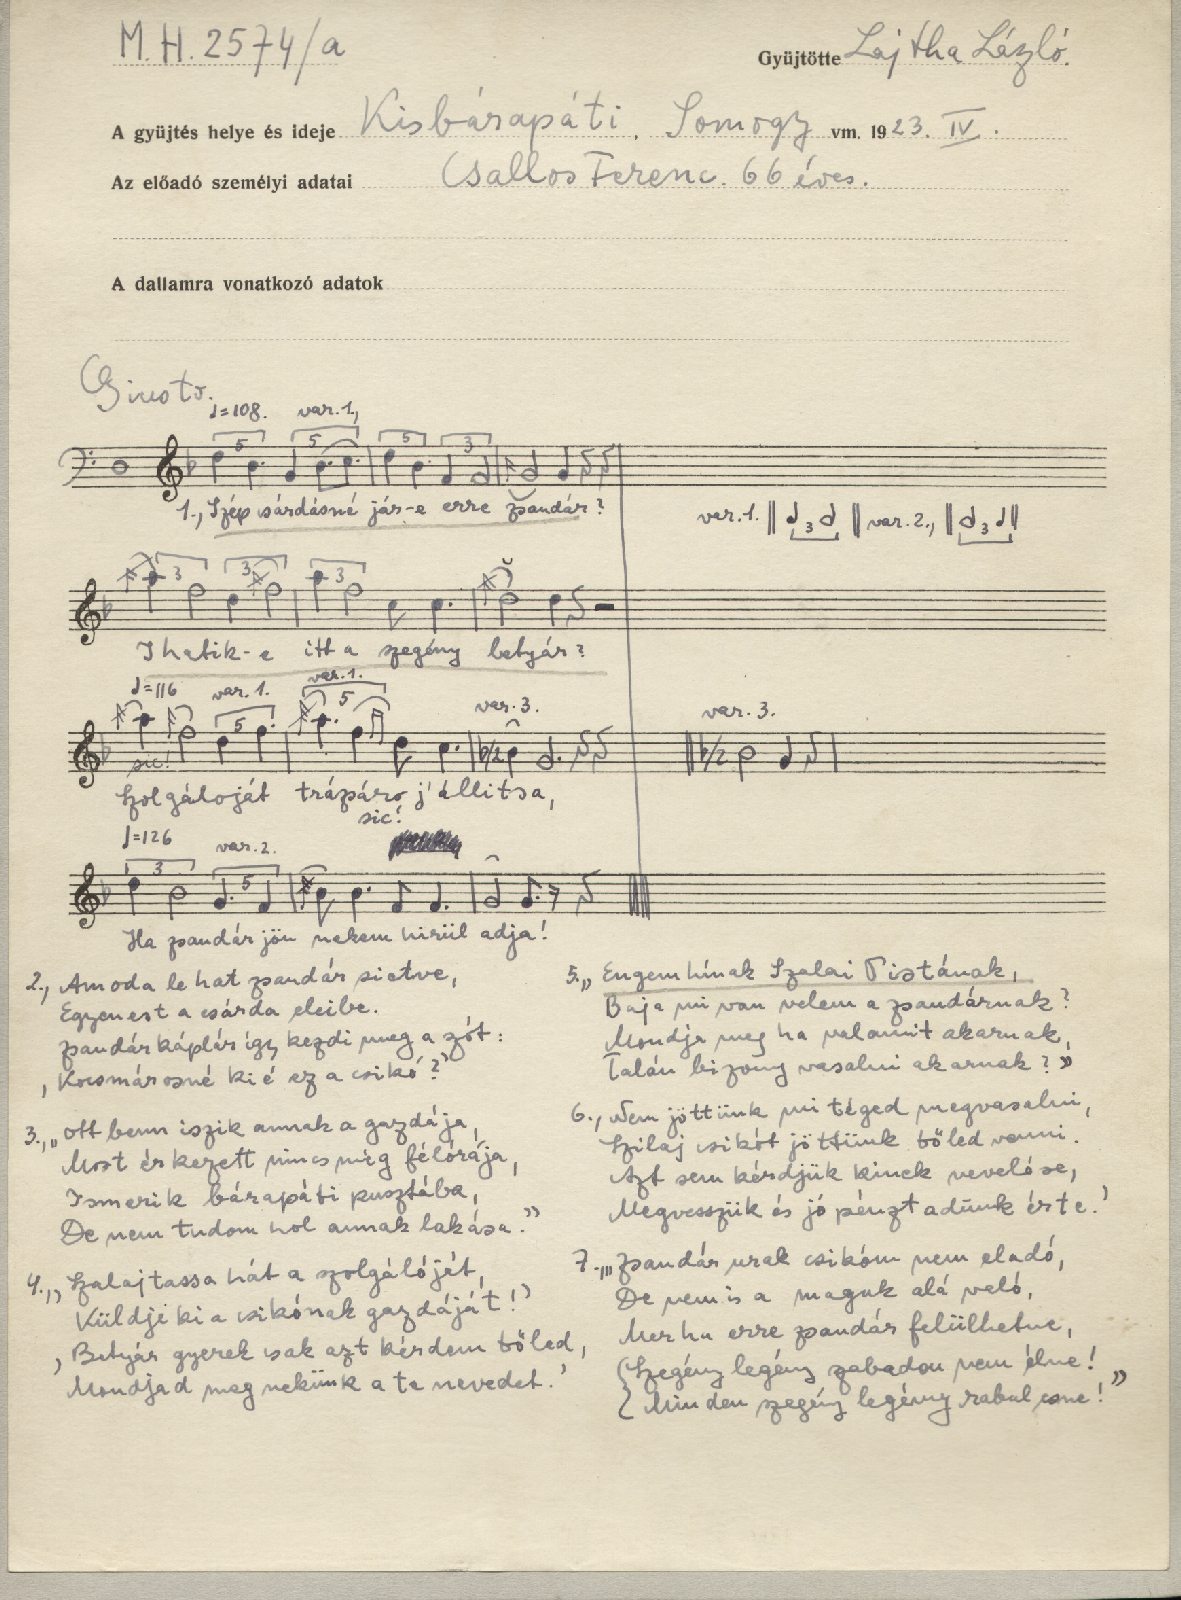 M.H. 2574/a
Gyüjtötte Lajtha László.
A gyüjtés helye és ideje Kisbárapáti, Somogy vm. 1923. IV.
Az előadó személyi adatai Csallos Ferenc. 66 éves.
A dallamra vonatkozó adatok
Giusto.
♩=108. var. 1.,
5 5 5 3
1., Szép csárdásné jár-e erre zsandár?
var. 1. 3 var. 2., 3
3 3 3
Ihatik-e itt a szegény betyár?
♩=116 var. 1. var. 1. var. 3. var. 3.
5 5
sic!
Szolgálóját trázsáro j'állitsa,
sic!
♩=126 var. 2.
3 5
Ha zsandár jön nekem hirül adja!
2., Amoda le hat zsandár sietve,
Egyenest a csárda eleibe.
Zsandárkáplár így kezdi meg a szót:
‚Kocsmárosné ki é ez a csikó?’
3., „Ott benn iszik annak a gazdája,
Most érkezett nincs még félórája,
Ismerik bárapáti pusztába,
De nem tudom hol annak lakása.”
4., „Szalajtassa hát a szolgálóját,
Küldje ki a csikónak gazdáját!’
‚Betyár gyerek csak azt kérdem tőled,
Mondjad meg nekünk a te nevedet.’
5., „Engem hínak Szalai Pistának,
Baja mi van velem a zsandárnak?
Mondja meg ha valamit akarnak,
Talán bizony vasalni akarnak?”
6., ‚Nem jöttünk mi téged megvasalni,
Szilaj csikót jöttünk tőled venni.
Azt sem kérdjük kinek nevelése,
Megvesszük és jó pénzt adünk érte.’
7., „Zsandár urak csikóm nem eladó,
De nem is a maguk alá való,
Mer ha erre zsandár felülhetne,
Szegény legény zabadon nem élne!
Minden szegény legény rabul esne!”